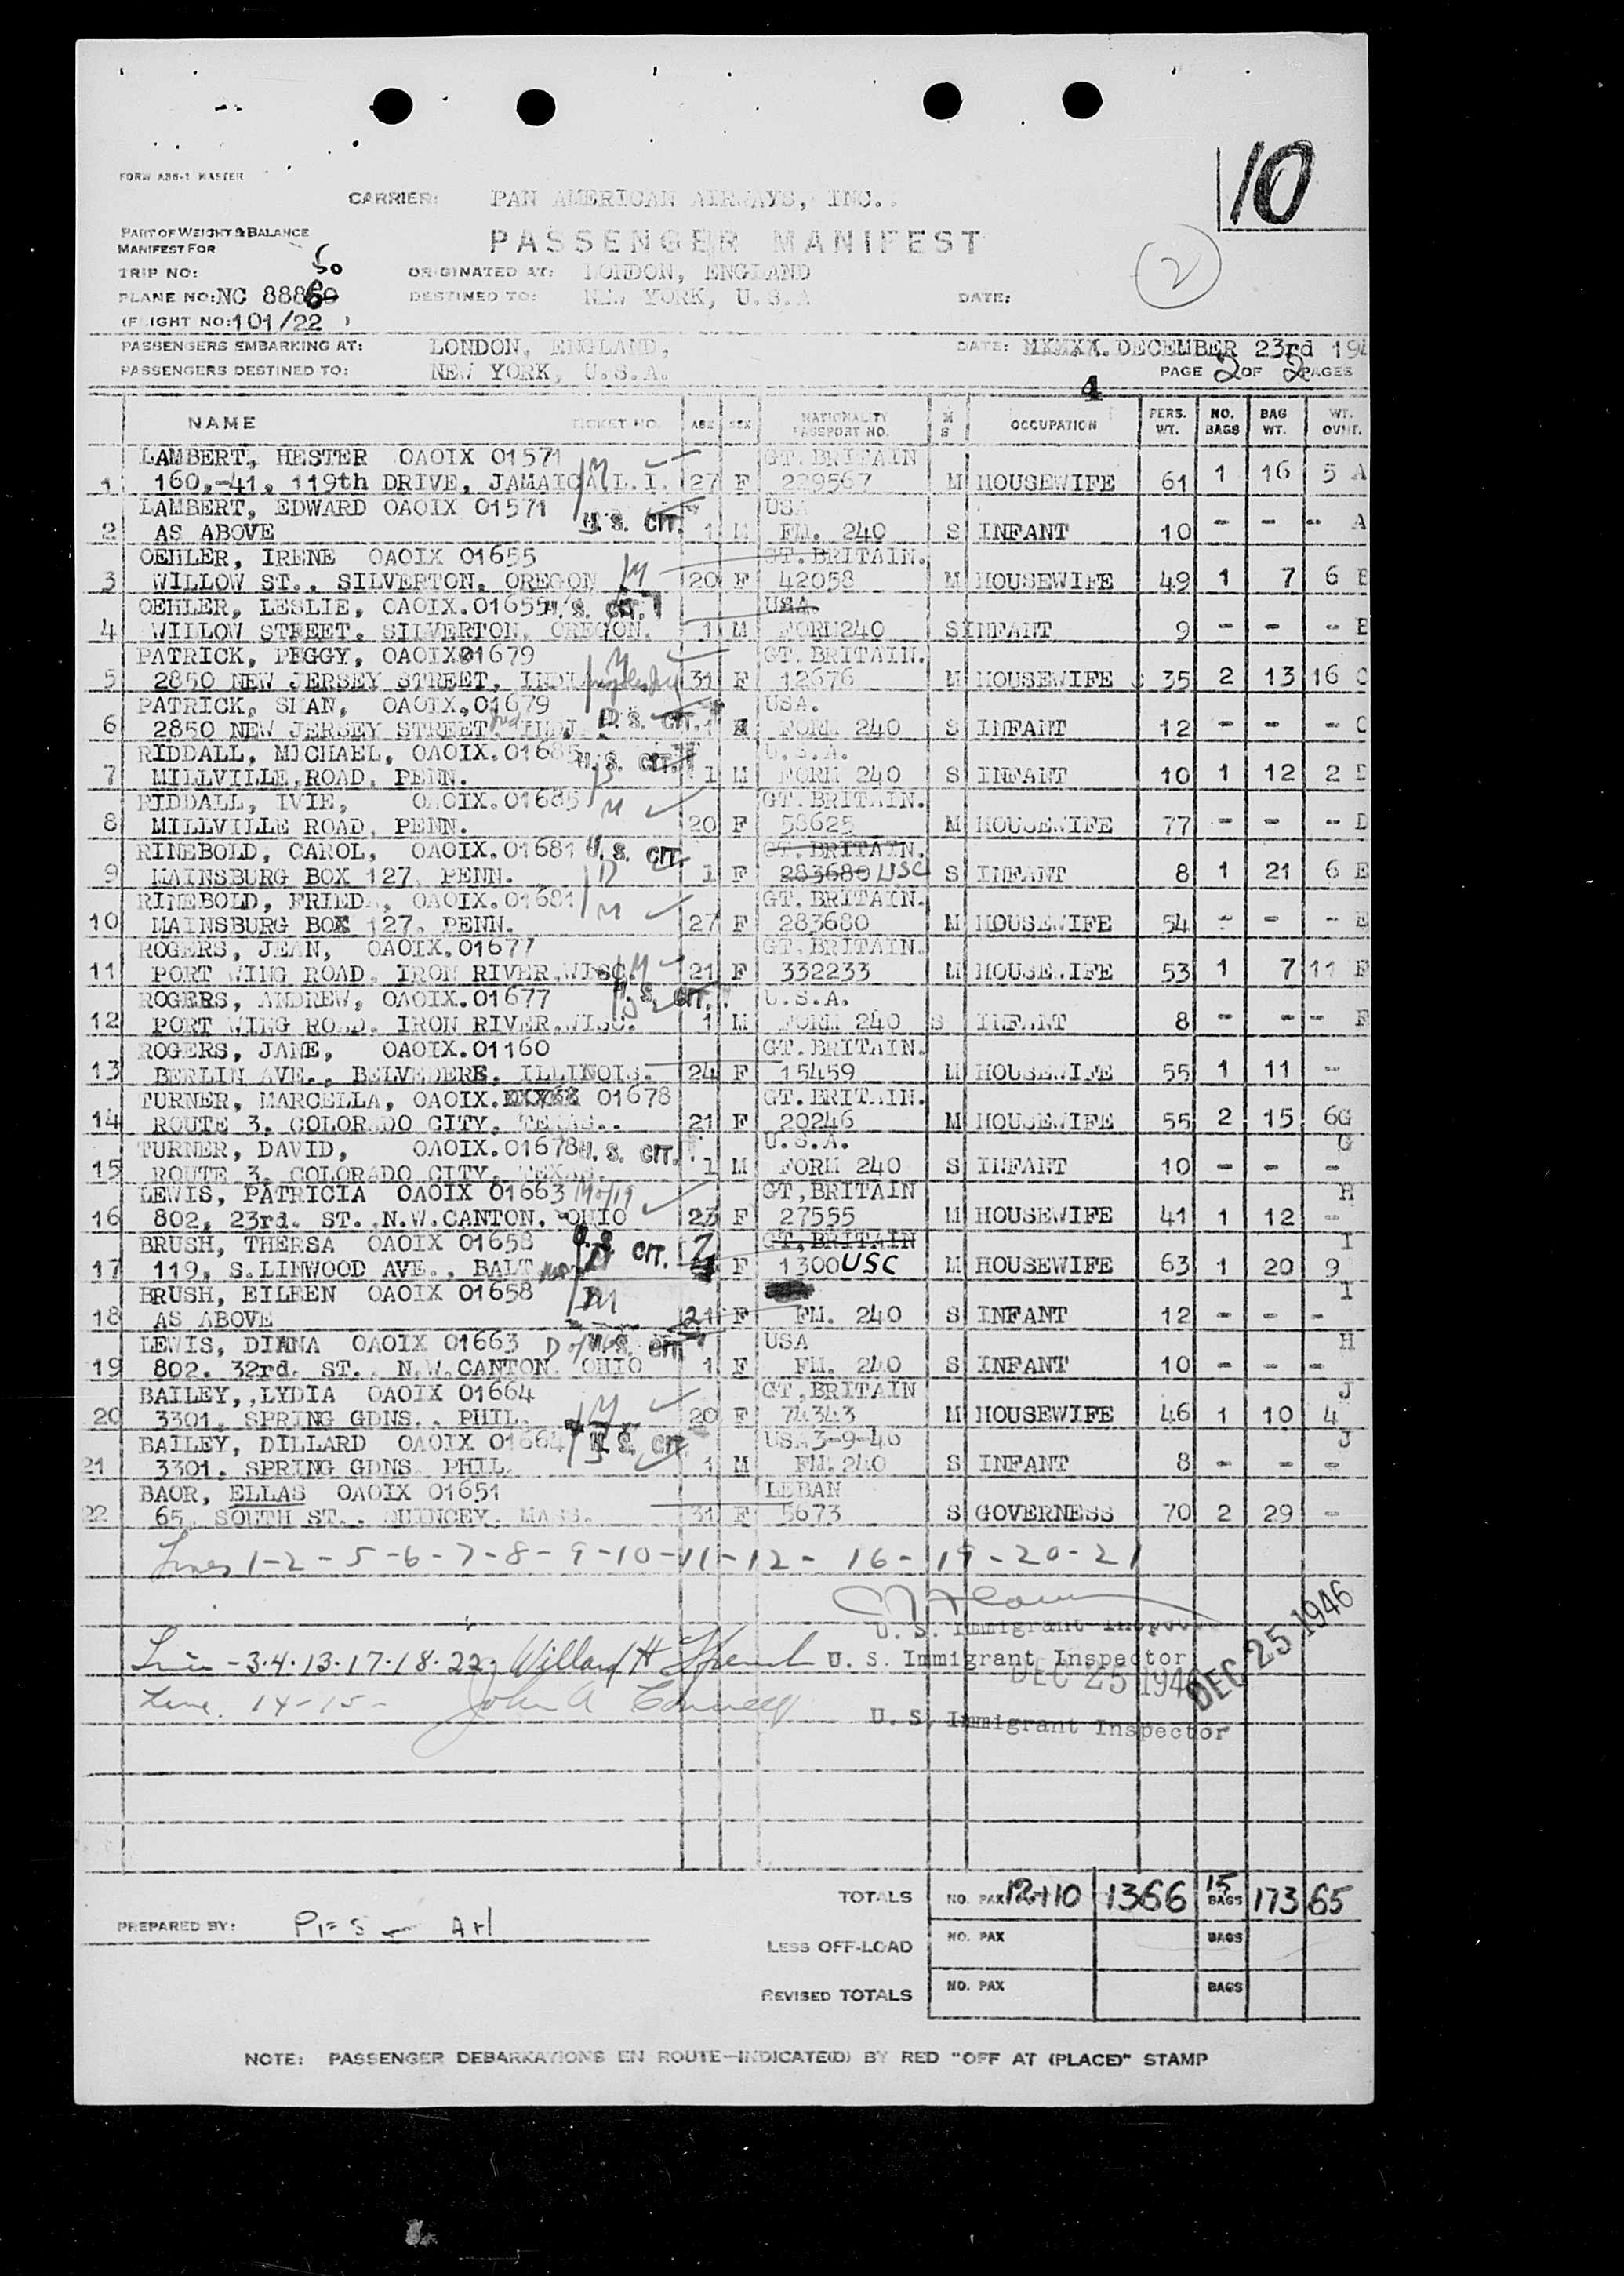 10
FORM A86-1 MASTER
CARRIER: PAN AMERICAN AIRWAYS, INC.
PART OF WEIGHT & BALANCE
MANIFEST FOR
PASSENGER MANIFEST
2
TRIP NO: 50
ORIGINATED AT: LONDON, ENGLAND
PLANE NO: NC 88860
DESTINED TO: NEW YORK, U.S.A
DATE:
(FLIGHT NO: 101/22 )
PASSENGERS EMBARKING AT: LONDON, ENGLAND,
DATE: DECEMBER 23rd 194
PASSENGERS DESTINED TO: NEW YORK, U.S.A.
PAGE 2 OF 2 PAGES
4
NAME TICKET NO. AGE SEX NATIONALITY PASSPORT NO. M S OCCUPATION PERS. WT. NO. BAGS BAG WT. WT. OVHT.
LAMBERT, HESTER OAOIX 01571 M GT. BRITAIN
1 160,-41, 119th DRIVE, JAMAICA L.I. 27 F 229567 M HOUSEWIFE 61 1 16 5 A
LAMBERT, EDWARD OAOIX 01571 U.S. CIT. USA
2 AS ABOVE 1 M FM. 240 S INFANT 10 - - - A
OEHLER, IRENE OAOIX 01655 M GT. BRITAIN.
3 WILLOW ST., SILVERTON, OREGON 20 F 42058 M HOUSEWIFE 49 1 7 6 B
OEHLER, LESLIE, OAOIX.01655 U.S. CIT. USA.
4 WILLOW STREET. SILVERTON, OREGON. 1 M FORM240 S INFANT 9 - - - B
PATRICK, PEGGY, OAOIX01679 M GT. BRITAIN.
5 2850 NEW JERSEY STREET, 31 F 12676 M HOUSEWIFE 35 2 13 16 C
PATRICK, SHAN, OAOIX.01679 U.S. CIT. USA.
6 2850 NEW JERSEY STREET 1 FORM 240 S INFANT 12 - - - C
RIDDALL, MICHAEL, OAOIX.01685 U.S. CIT. U.S.A.
7 MILLVILLE,ROAD, PENN. 1 M FORM 240 S INFANT 10 1 12 2 D
RIDDALL, IVIE, OAOIX.01685 M GT. BRITAIN.
8 MILLVILLE ROAD, PENN. 20 F 58625 M HOUSEWIFE 77 - - - D
RINEBOLD, CAROL, OAOIX.01681 U.S. CIT. GT. BRITAIN.
9 MAINSBURG BOX 127, PENN. D 1 F 283680 USC S INFANT 8 1 21 6 E
RINEBOLD, FRIEDA, OAOIX.01681 M GT. BRITAIN.
10 MAINSBURG BOX 127, PENN. 27 F 283680 M HOUSEWIFE 54 - - - E
ROGERS, JEAN, OAOIX.01677 GT. BRITAIN.
11 PORT WING ROAD, IRON RIVER,WISC. M 21 F 332233 M HOUSEWIFE 53 1 7 11 F
ROGERS, ANDREW, OAOIX.01677 U.S. CIT. U.S.A.
12 PORT WING ROAD, IRON RIVER,WISC. 1 M FORM 240 S INFANT 8 - - - F
ROGERS, JANE, OAOIX.01160 GT. BRITAIN.
13 BERLIN AVE., BELVEDERE, ILLINOIS. 24 F 15459 M HOUSEWIFE 55 1 11 -
TURNER, MARCELLA, OAOIX. 01678 GT. BRITAIN.
14 ROUTE 3, COLORADO CITY, TEXAS.. 21 F 20246 M HOUSEWIFE 55 2 15 6G
TURNER, DAVID, OAOIX.01678 U.S. CIT. U.S.A. G
15 ROUTE 3, COLORADO CITY, TEXAS. 1 M FORM 240 S INFANT 10 - - -
LEWIS, PATRICIA OAOIX 01663 M of 19 GT,BRITAIN H
16 802, 23rd. ST. ,N.W.CANTON, OHIO 23 F 27555 M HOUSEWIFE 41 1 12 -
BRUSH, THERSA OAOIX 01658 U.S. CIT. GT,BRITAIN I
17 119, S.LINWOOD AVE., BALT F 1300 USC M HOUSEWIFE 63 1 20 9
BRUSH, EILEEN OAOIX 01658 M I
18 AS ABOVE 21 F FM. 240 S INFANT 12 - - -
LEWIS, DIANA OAOIX 01663 U.S. CIT. USA H
19 802. 32rd. ST., N.W.CANTON. OHIO 1 F FM. 240 S INFANT 10 - - -
BAILEY,,LYDIA OAOIX 01664 M GT,BRITAIN J
20 3301, SPRING GDNS., PHIL. 20 F 74343 M HOUSEWIFE 46 1 10 4
BAILEY, DILLARD OAOIX 01664 U.S. CIT. USA 3-9-46 J
21 3301. SPRING GDNS. PHIL. 1 M FM.240 S INFANT 8 - - -
BAOR, ELLAS OAOIX 01651 LEBAN
22 65, SOUTH ST., QUINCEY, MASS. 31 F 5673 S GOVERNESS 70 2 29 -
Lines 1-2-5-6-7-8-9-10-11-12-16-19-20-21
U. S. Immigrant Inspector
Line -3.4.13.17.18.22. Willard H U. S. Immigrant Inspector
DEC 25 1946
DEC 25 1946
Line 14-15- John A
U. S. Immigrant Inspector
TOTALS NO. PAX 12+10 1366 15 BAGS 173 65
PREPARED BY: AH
LESS OFF-LOAD NO. PAX BAGS
REVISED TOTALS NO. PAX BAGS
NOTE: PASSENGER DEBARKATIONS EN ROUTE—INDICATE(D) BY RED "OFF AT (PLACE)" STAMP